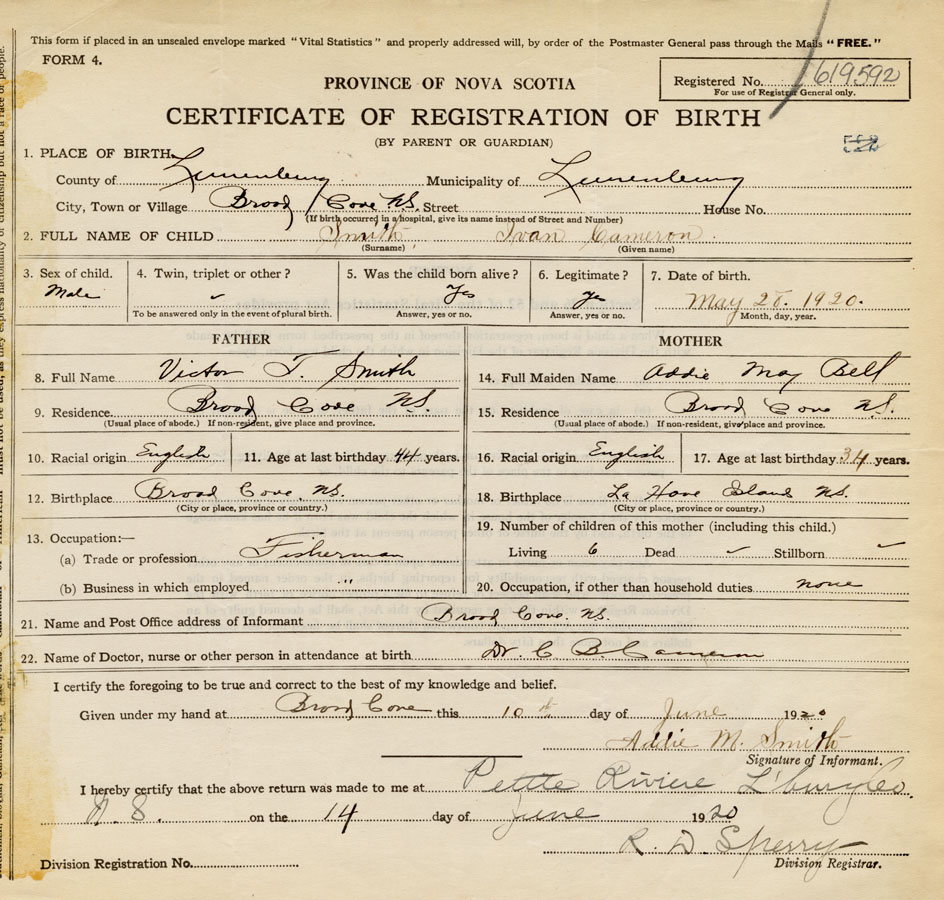 This form if placed in an unsealed envelope marked "Vital Statistics" and properly addressed will, by order of the Postmaster General pass through the Mails "FREE."
FORM 4.
Registered No. 619592
For use of Registrar General only.
PROVINCE OF NOVA SCOTIA
CERTIFICATE OF REGISTRATION OF BIRTH
(BY PARENT OR GUARDIAN)
1. PLACE OF BIRTH
County of Lunenburg Municipality of Lunenburg
City, Town or Village Broad Cove N.S. Street House No.
(If birth occurred in a hospital, give its name instead of Street and Number)
2. FULL NAME OF CHILD Smith, Ivan Cameron.
(Surname) (Given name)
3. Sex of child. 4. Twin, triplet or other? 5. Was the child born alive? 6. Legitimate? 7. Date of birth.
Male ✓ Yes Yes May 28. 1920.
To be answered only in the event of plural birth. Answer, yes or no. Answer, yes or no. Month, day, year.
FATHER MOTHER
8. Full Name Victor T. Smith 14. Full Maiden Name Addie May Bell
9. Residence Broad Cove N.S. 15. Residence Broad Cove N.S.
(Usual place of abode.) If non-resident, give place and province. (Usual place of abode.) If non-resident, give place and province.
10. Racial origin English 11. Age at last birthday 44 years. 16. Racial origin English 17. Age at last birthday 34 years.
12. Birthplace Broad Cove, N.S. 18. Birthplace La Have Island N.S.
(City or place, province or country.) (City or place, province or country.)
13. Occupation:— 19. Number of children of this mother (including this child.)
(a) Trade or profession Fisherman Living 6 Dead ✓ Stillborn ✓
(b) Business in which employed "" 20. Occupation, if other than household duties none
21. Name and Post Office address of Informant Broad Cove. N.S.
22. Name of Doctor, nurse or other person in attendance at birth Dr. C B. Cameron
I certify the foregoing to be true and correct to the best of my knowledge and belief.
Given under my hand at Broad Cove this 10th day of June 1920
Addie M. Smith
Signature of Informant.
I hereby certify that the above return was made to me at Petite Riviere L'burg Co.
N. S. on the 14 day of June 1920
R. D. Sperry
Division Registration No. Division Registrar.